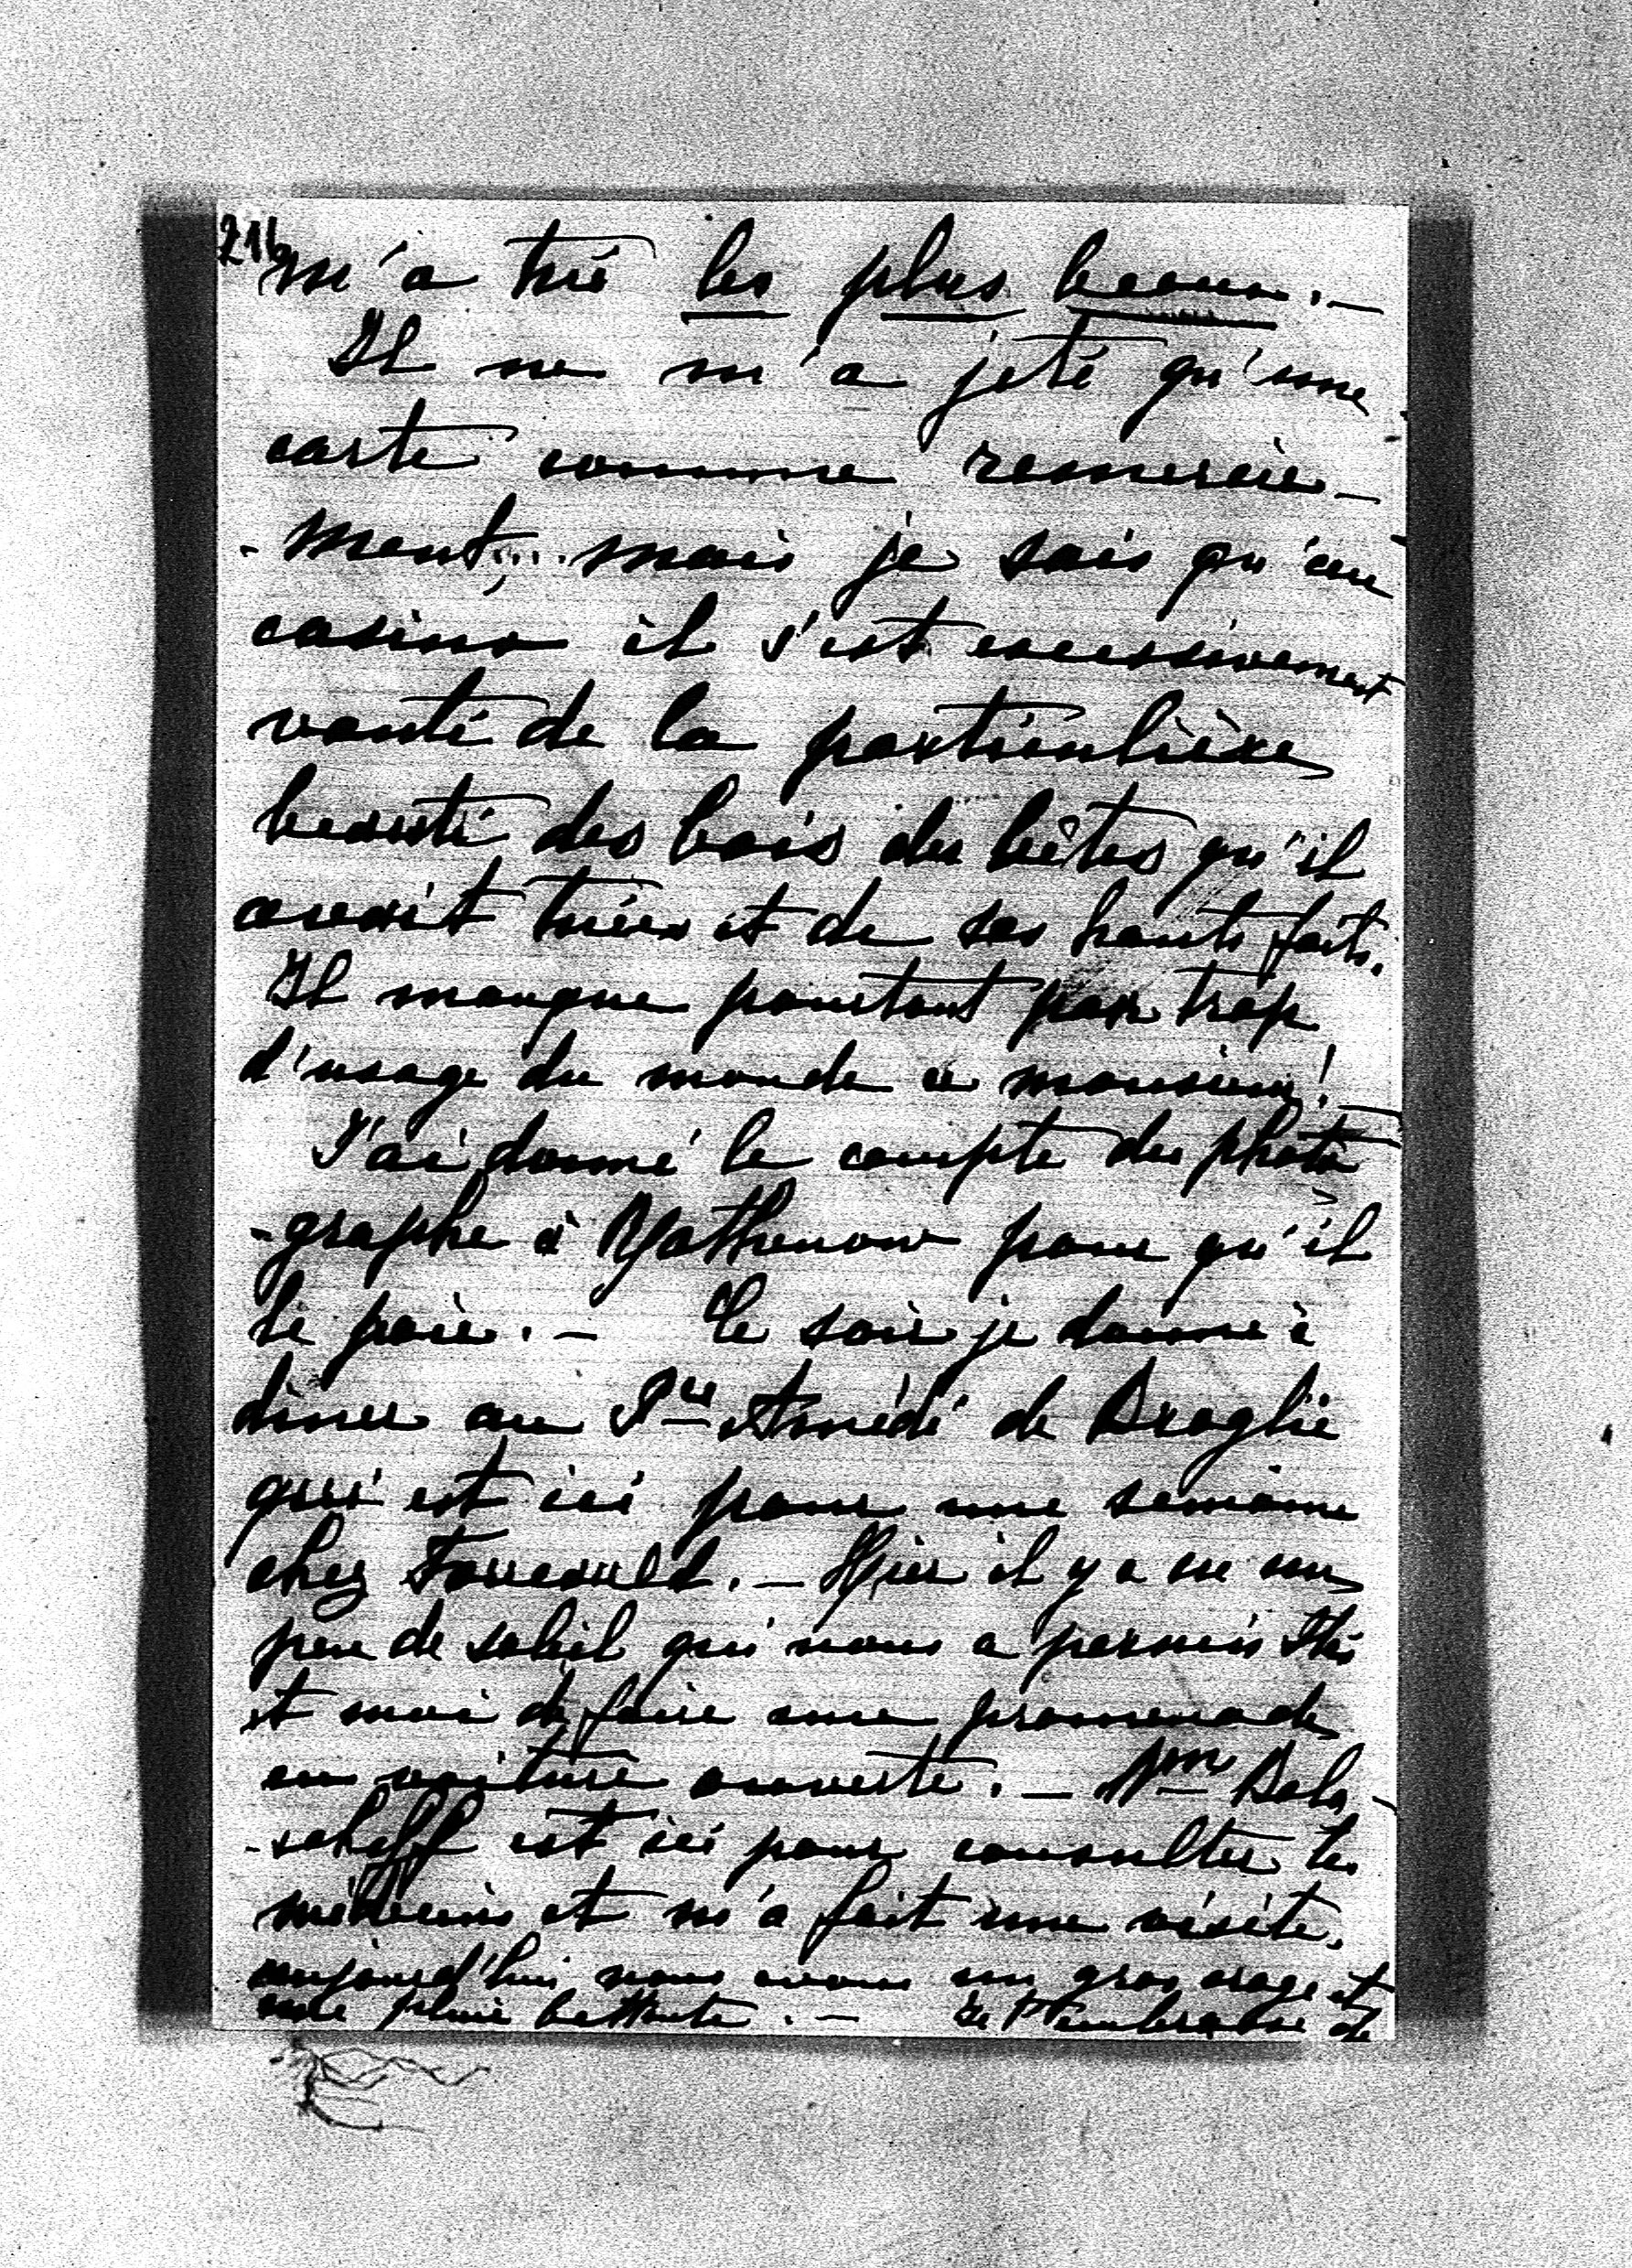 216
m'a tué les plus beaux. —
Il ne m'a jeté qu'une
carte comme remercie-
-ment,... mais je sais qu'au
casino il s'est excessivement
vanté de la particulière
beauté des bois des bêtes qu'il
avait tuées et de ses hauts faits.
Il manque pourtant par trop
d'usage du monde ce monsieur!
J'ai donné le compte du photo
-graphe à pour qu'il
le paie. — Ce soir je donne à
dîner au Pce Amédé de Broglie
qui est ici pour une semaine
chez — Hier il y a eu un
peu de soleil qui nous a permis
et moi de faire une promenade
en voiture ouverte. — Mme Bala-
-scheff est ici pour consulter les
médecins et m'a fait une visite.
aujourd'hui nous avons un gros orage et
une pluie battante. — Je t'embrasse de